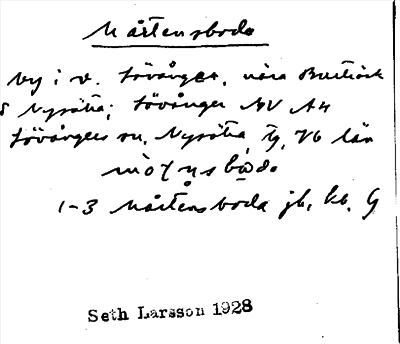 Mårtensboda
by i v. Lövånger, nära Bureå
S Nysätra; Lövånger NV AH
Lövångers sn, Nysätra tg, Vb län
1-3 Mårtensboda jb, kb, G
Seth Larsson 1928